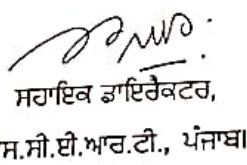 ਸਹਾਇਕ ਡਾਇਰੈਕਟਰ,
ਸ.ਸੀ.ਈ.ਆਰ.ਟੀ., ਪੰਜਾਬ।